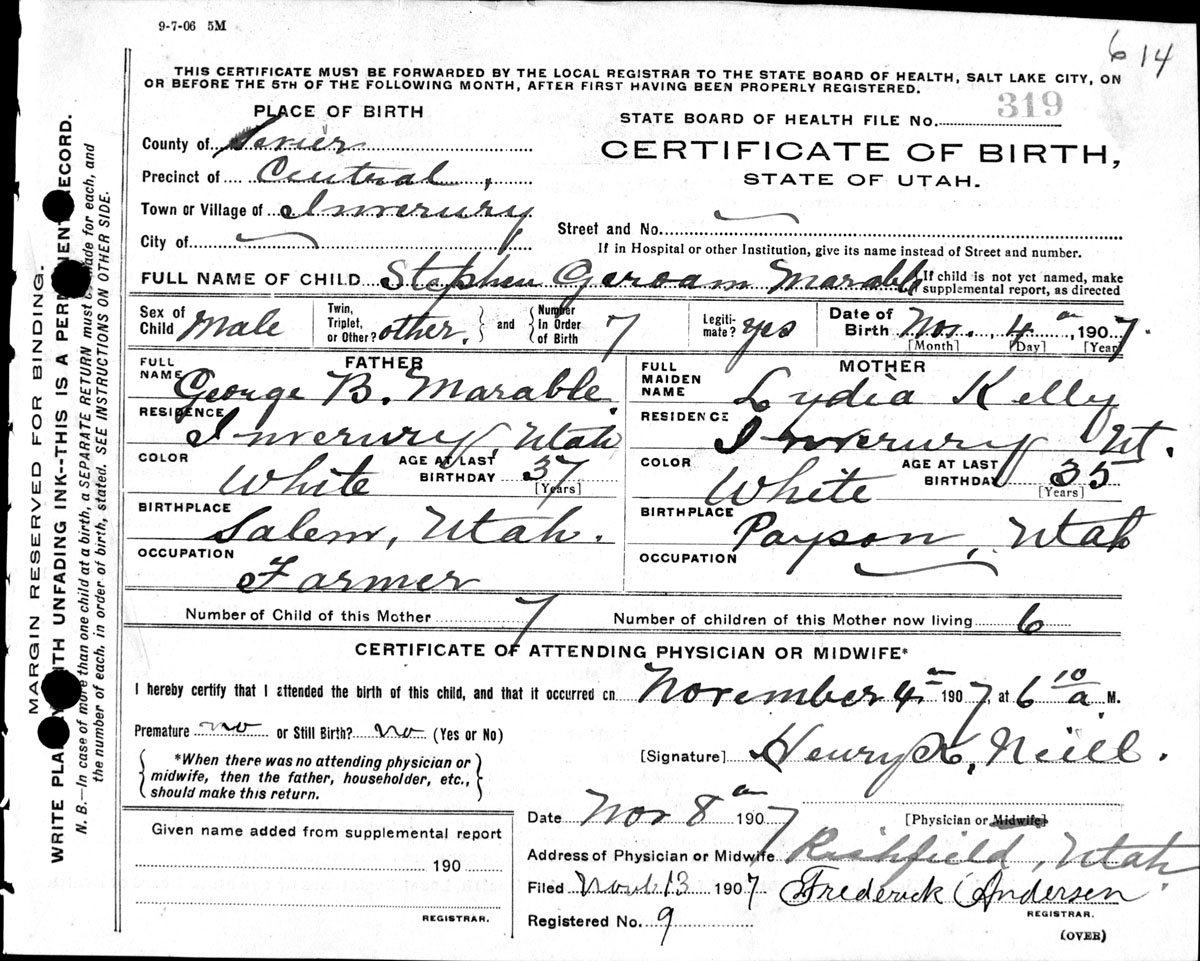 9-7-06 5M
6 14
THIS CERTIFICATE MUST BE FORWARDED BY THE LOCAL REGISTRAR TO THE STATE BOARD OF HEALTH, SALT LAKE CITY, ON
OR BEFORE THE 5TH OF THE FOLLOWING MONTH, AFTER FIRST HAVING BEEN PROPERLY REGISTERED.
PLACE OF BIRTH
County of Sevier
Precinct of Central,
Town or Village of Inverury
City of
STATE BOARD OF HEALTH FILE No. 319
CERTIFICATE OF BIRTH,
STATE OF UTAH.
Street and No.
If in Hospital or other Institution, give its name instead of Street and number.
FULL NAME OF CHILD Stephen Geroam Marable
If child is not yet named, make
supplemental report, as directed
Sex of Child Male
Twin, Triplet, or Other? other.
and
Number In Order of Birth 7
Legiti-mate? yes
Date of Birth Nov. 4 1907.
[Month] [Day] [Year]
FATHER
FULL NAME George B. Marable.
RESIDENCE Inverury, Utah
COLOR White
AGE AT LAST BIRTHDAY 37
[Years]
BIRTHPLACE Salem, Utah.
OCCUPATION Farmer
MOTHER
FULL MAIDEN NAME Lydia Kelly
RESIDENCE Inverury Ut.
COLOR White
AGE AT LAST BIRTHDAY 35
[Years]
BIRTHPLACE Payson, Utah
OCCUPATION
Number of Child of this Mother 7
Number of children of this Mother now living 6
CERTIFICATE OF ATTENDING PHYSICIAN OR MIDWIFE*
I hereby certify that I attended the birth of this child, and that it occurred on November 4 1907, at 6 10 a. M.
Premature no or Still Birth? No (Yes or No)
*When there was no attending physician or
midwife, then the father, householder, etc.,
should make this return.
[Signature] Henry K. Neill.
Date Nov 8 1907
[Physician or Midwife]
Address of Physician or Midwife Richfield, Utah.
Filed Nov 13 1907
Frederick Andersen
REGISTRAR.
Registered No. 9
(OVER)
Given name added from supplemental report
190
REGISTRAR.
MARGIN RESERVED FOR BINDING.
WRITE UNFADING INK--THIS IS A RECORD.
N. B.—In case of more than one child at a birth, a SEPARATE RETURN must be made for each, and
the number of each, in order of birth, stated. SEE INSTRUCTIONS ON OTHER SIDE.